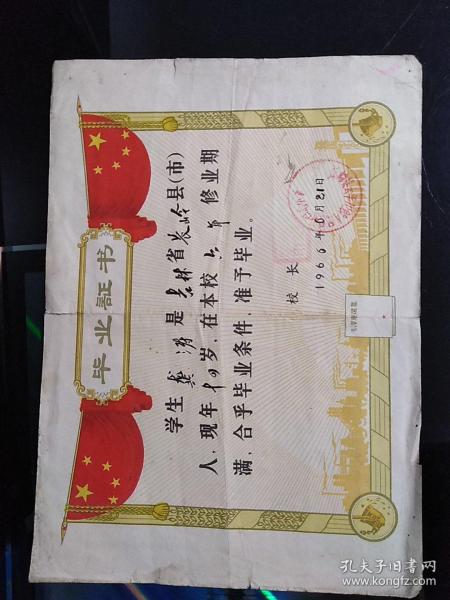 毕业证书
学生 龚 是 吉林 省 长岭 县(市)
人, 现年 十四 岁, 在本校 六年 修业期
满, 合乎毕业条件, 准予毕业。
校 长
1966 年 月 21 日
毛泽东选集
孔夫子旧书网
www.kongfz.com